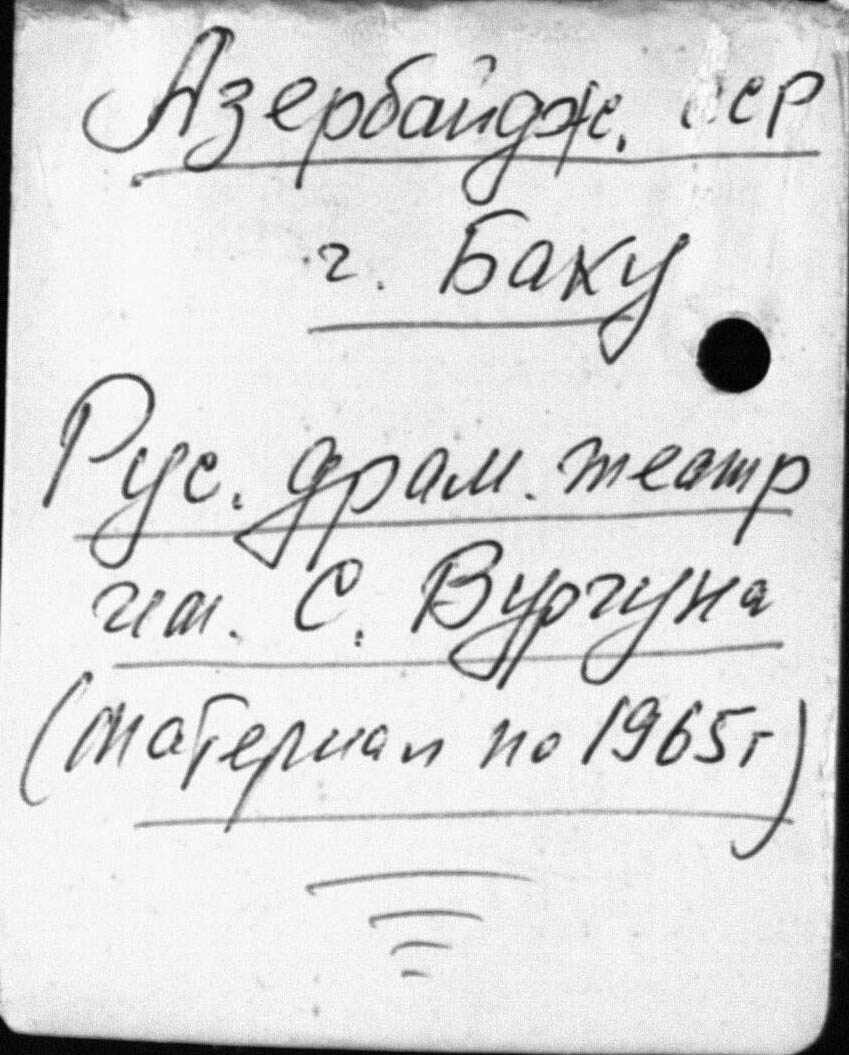 Азербайдж. ССР
г. Баку
Рус. драм. театр
им. С. Вургуна
(материал по 1965г)